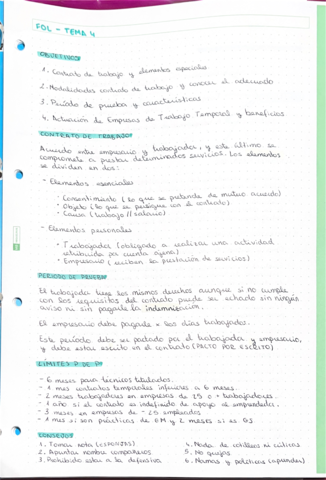 FOL - TEMA 4
OBJETIVOS
1. Contrato de trabajo y elementos especiales
2. Modalidades contrato de trabajo y conocer el adecuado
3. Período de prueba y características
4. Actuación de Empresas de Trabajo Temporal y beneficios
CONTRATO DE TRABAJO
Acuerdo entre empresario y trabajador, y este último se
compromete a prestar determinados servicios. Los elementos
se dividen en dos:
- Elementos esenciales
· Consentimiento (lo que se pretende de mutuo acuerdo)
· Objeto (lo que se persigue con el contrato)
· Causa (trabajo // salario)
- Elementos personales
· Trabajador (obligado a realizar una actividad
retribuida por cuenta ajena)
· Empresario (reciben la prestación de servicios)
PERIODO DE PRUEBA
El trabajador tiene los mismos derechos aunque si no cumple
con los requisitos del contrato puede ser echado sin ningún
aviso ni sin pagarle la indemnización.
El empresario debe pagarle x los días trabajados.
Este período debe ser pactado por el trabajador y empresario,
y debe estar escrito en el contrato (PACTO POR ESCRITO)
LÍMITES P. DE P.
- 6 meses para técnicos titulados.
- 1 mes contratos temporales inferiores a 6 meses.
- 2 meses trabajadores en empresas de 25 o + trabajadores.
- 1 año si el contrato es indefinido de apoyo a emprendedores.
- 3 meses en empresas de - 25 empleados
- 1 mes si son prácticas de GM y 2 meses si es GS.
CONSEJOS
1. Tomar nota (ESPONJAS)
2. Apuntar nombre compañeros
3. Prohibido estar a la defensiva
4. Nada de cotilleos ni críticas
5. No quejas
6. Normas y políticas (aprender)